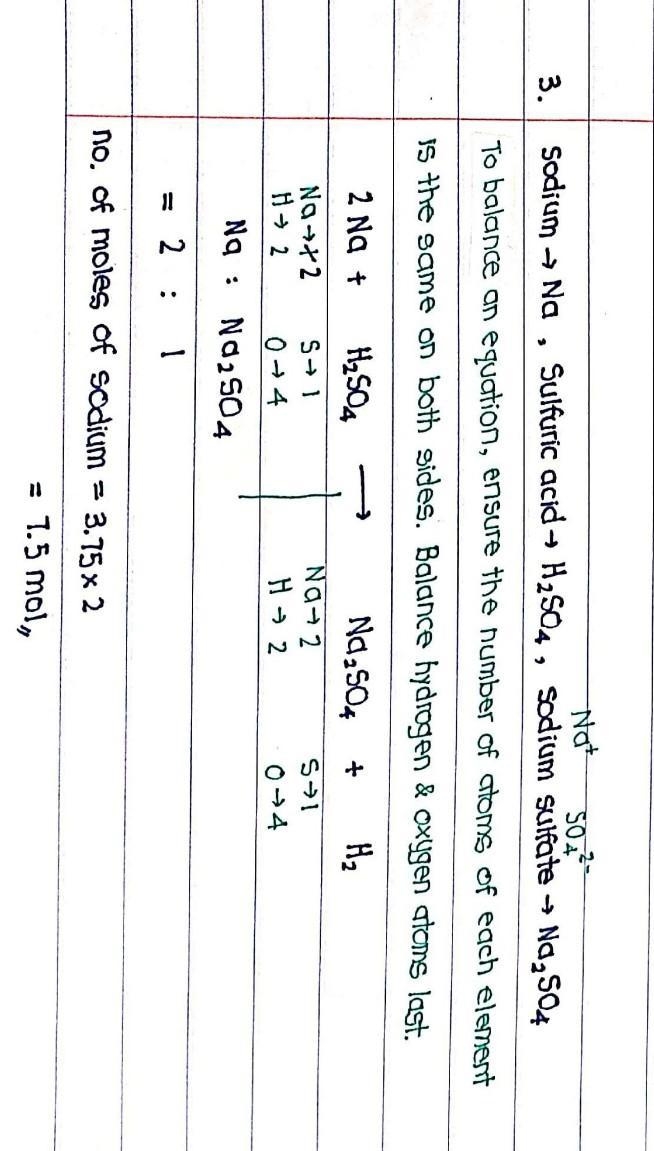 Na⁺ SO₄²⁻
3. Sodium → Na , Sulfuric acid → H₂SO₄ , sodium sulfate → Na₂SO₄
To balance an equation, ensure the number of atoms of each element
is the same on both sides. Balance hydrogen & oxygen atoms last.
2 Na + H₂SO₄ → Na₂SO₄ + H₂
Na → 2 S → 1 Na → 2 S → 1
H → 2 O → 4 H → 2 O → 4
Na : Na₂SO₄
= 2 : 1
no. of moles of sodium = 3.75 × 2
= 7.5 mol,,